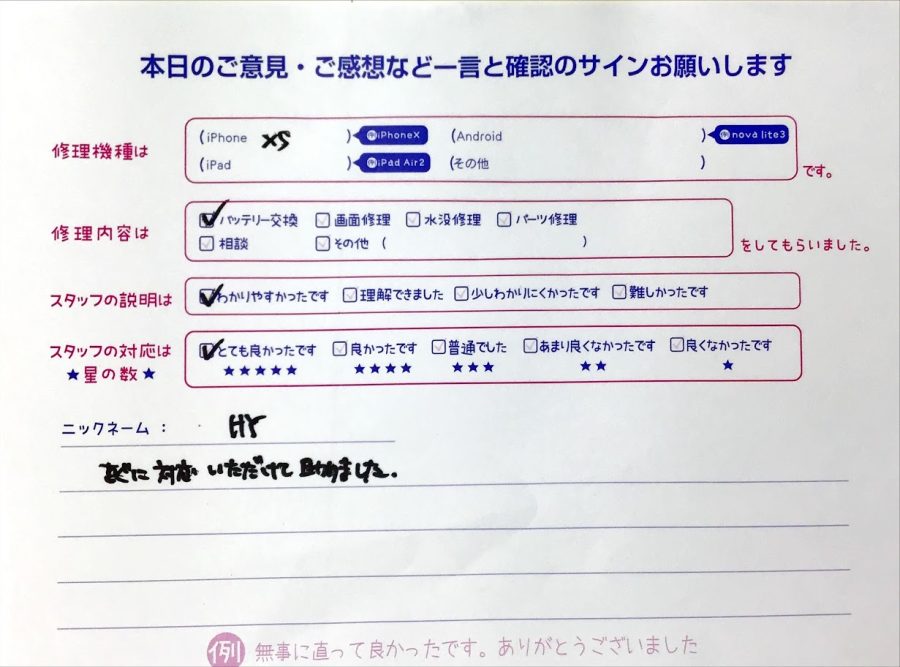 本日のご意見・ご感想など一言と確認のサインお願いします
修理機種は (iPhone XS ) 例iPhoneX (Android ) 例nova lite3
(iPad ) 例iPad Air2 (その他 ) です。
修理内容は バッテリー交換 画面修理 水没修理 パーツ修理
相談 その他 ( ) をしてもらいました。
スタッフの説明は わかりやすかったです 理解できました 少しわかりにくかったです 難しかったです
スタッフの対応は とても良かったです 良かったです 普通でした あまり良くなかったです 良くなかったです
★星の数★ ★★★★★ ★★★★ ★★★ ★★ ★
ニックネーム: HY
すぐに対応いただけて助かりました。
例 無事に直って良かったです。ありがとうございました